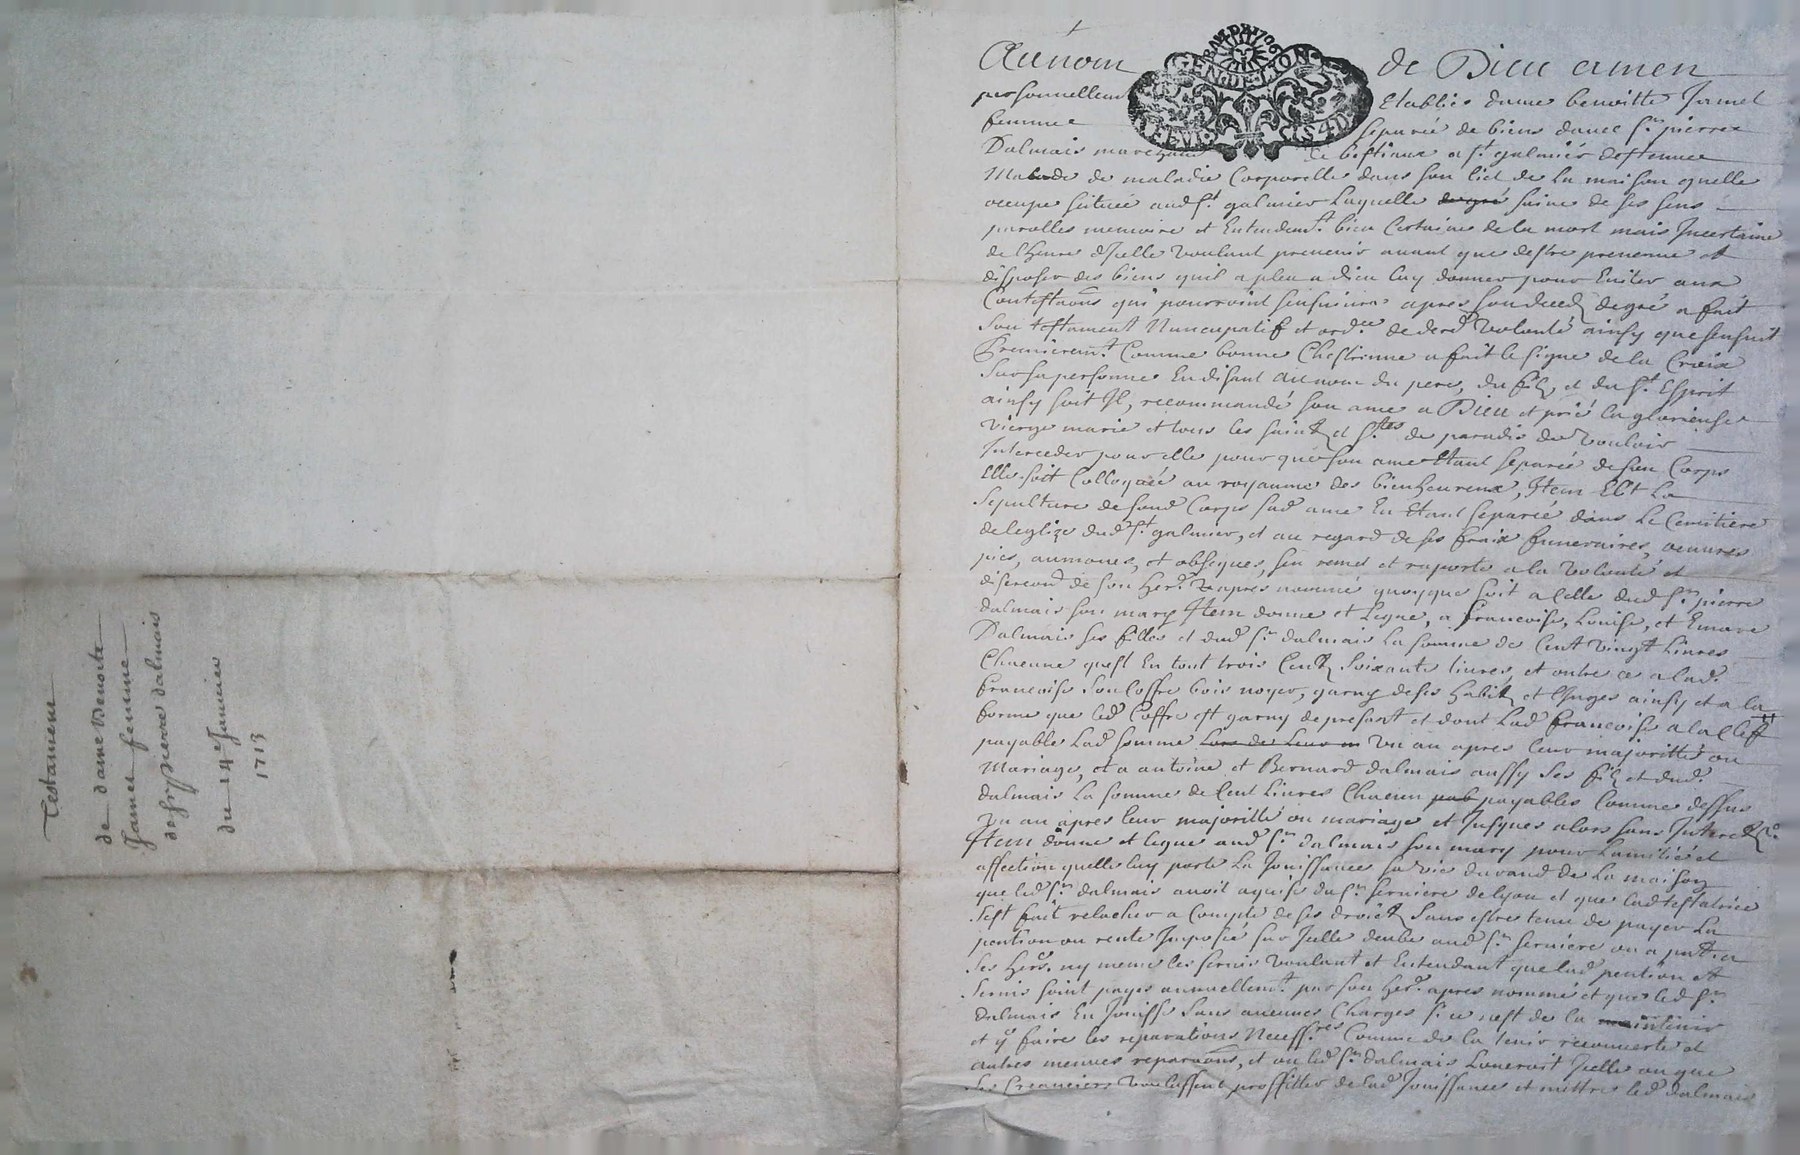 Testament
de dame Benoite
Jamet femme
de sr pierre dalmais
du 14e Janvier
1713
GEN·DE·LION
Au nom de Dieu amen
personnellemt Establie dame benoitte Jamet
femme separée de biens davec sr pierre
Dalmais marchand de bestiaux a st galmier destenue
Malade de maladie Corporelle dans son lict de la maison quelle
occupe scituée aud st galmier Laquelle de gré saine de ses sens
parolles memoire et Entendemt bien Certaine de la mort mais Incertaine
de lheure dJcelle voulant prevenir avant que destre prevenue et
disposer des biens quil a pleu a dieu luy donner pour Eviter aux
Contestaons qui pourroint sensuivre apres son deced de gré a fait
son testament Nuncupatif et ordce de derre volonté ainsy que sensuit
Premieremt Comme bonne Chestienne a fait le signe de la Croix
sur sa personne En disant au nom du pere, du fils, et du st Esprit
ainsy soit Il, recommandé son ame a Dieu et prié la glorieuse
vierge marie et tous les saints et stes de paradis de vouloir
Interceder pour elle pour que son ame Etant separée de son Corps
Elle soit Colloquée au royaume des bienheureux, Item Elit La
sepulture de sond Corps sad ame En Etant separée dans Le Cemitiere
de leglize dud st galmier, et au regard de ses fraix funeraires, oeuvres
pies, aumones, et obseques, sen remet et raporte a la volonté et
discreon de son herr apres nommé quoyque soit a Celle dud sr pierre
dalmais son mary Item donne et Legue, a francoise, Louise, et Emare
Dalmais ses filles et dud sr dalmais La somme de Cent vingt Livres
Chacune quest En tout trois Cents soixante livres, et outre ce a lad
francoise son Coffre bois noyer, garny de ses habits et linges ainsy et a la
forme que led Coffre est garny de presant et dont Lad francoise a la Cleff
payable Lad somme Lors de Leur m un an apres leur majoritté ou
Mariage, et a antoine et Bernard dalmais aussy ses fils et dud
dalmais La somme de Cent Livres Chacun pab payables Comme dessus
un an apres leur majoritté ou mariage et Jusques alors sans Interets
Item donne et legue aud sr dalmais son mary pour Lamitié et
affection quelle luy porte La Jouissance sa vie durand de La maison
que led sr dalmais avoit aquise du sr serniere de lyon et que lad testatrice
sest fait relacher a Compte de ses droicts sans estre tenu de payer La
pention ou rente Imposée sur Jcelle deube aud sr serniere ou a
ses herrs ny meme les servis voulant et Entendant que lad pention et
servis soint payes annuellemt par son herr apres nommé et que led sr
dalmais En Jouisse sans aucunes Charges si ce nest de la maintenir
et y faire les reparations Necessres Comme de la tenir recouverte et
autres menues reparaons, et ou led sr dalmais Loueroit Jcelle ou que
ses Creanciers voulussent proffitter de lad Jouissance et mettre led dalmais